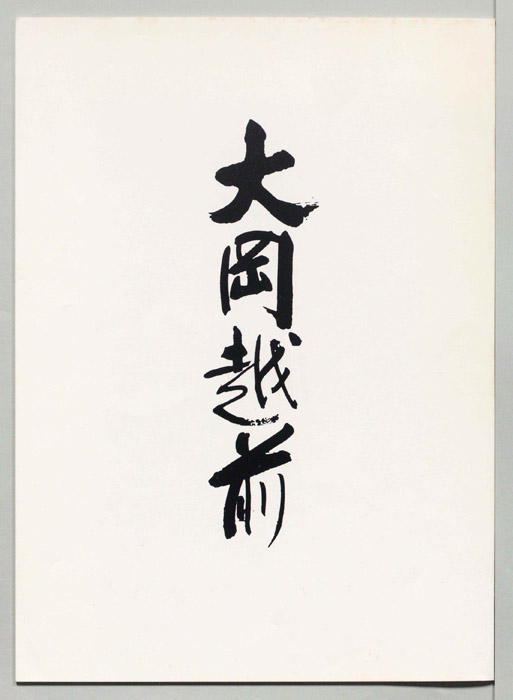 大岡越前